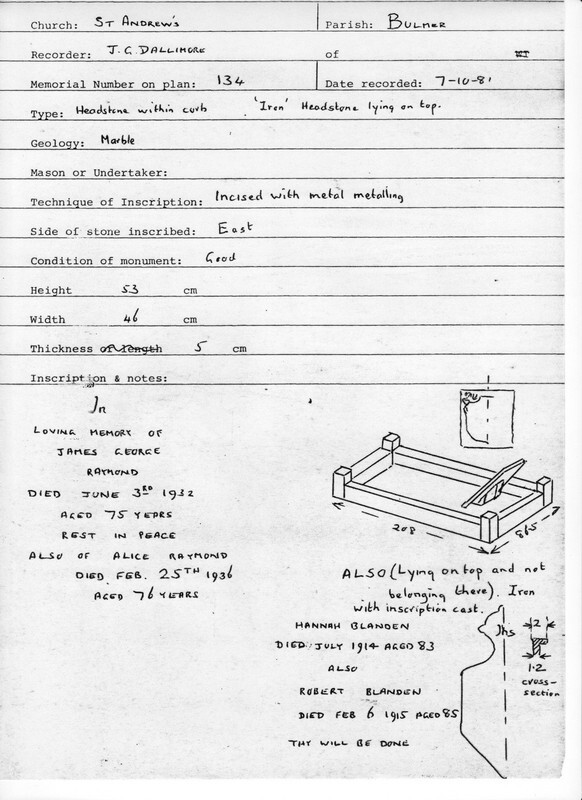 Church: ST ANDREW'S Parish: BULMER
Recorder: J.G. DALLIMORE of
Memorial Number on plan: 134 Date recorded: 7-10-81
Type: Headstone within curb 'Iron' Headstone lying on top.
Geology: Marble
Mason or Undertaker:
Technique of Inscription: Incised with metal metalling
Side of stone inscribed: East
Condition of monument: Good
Height 53 cm
Width 46 cm
Thickness of length 5 cm
Inscription & notes:
In
LOVING MEMORY OF
JAMES GEORGE
RAYMOND
DIED JUNE 3RD 1932
AGED 75 YEARS
REST IN PEACE
ALSO OF ALICE RAYMOND
DIED FEB. 25TH 1936
AGED 76 YEARS
208
865
ALSO (Lying on top and not
belonging there). Iron
with inscription cast.
HANNAH BLANDEN
DIED JULY 1914 AGED 83
ALSO
ROBERT BLANDEN
DIED FEB 6 1915 AGED 85
THY WILL BE DONE
Ihs
2
1.2
cross-
section